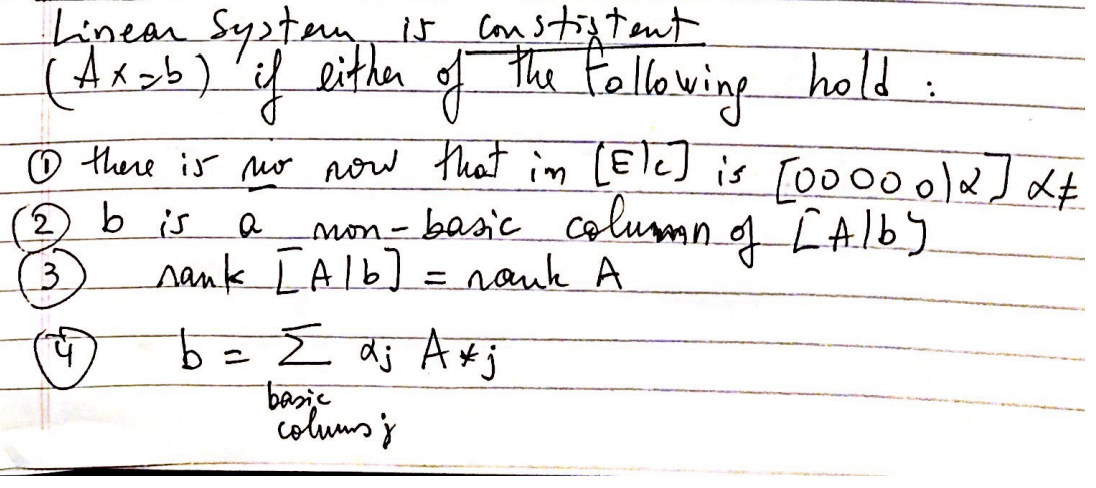 Linear System is constistent
(Ax=b) if either of the following hold :
① there is no row that in [E|c] is [00000|α] α≠
② b is a non-basic column of [A|b]
③ rank [A|b] = rank A
④ b = Σ αj A*j
basic
colums j